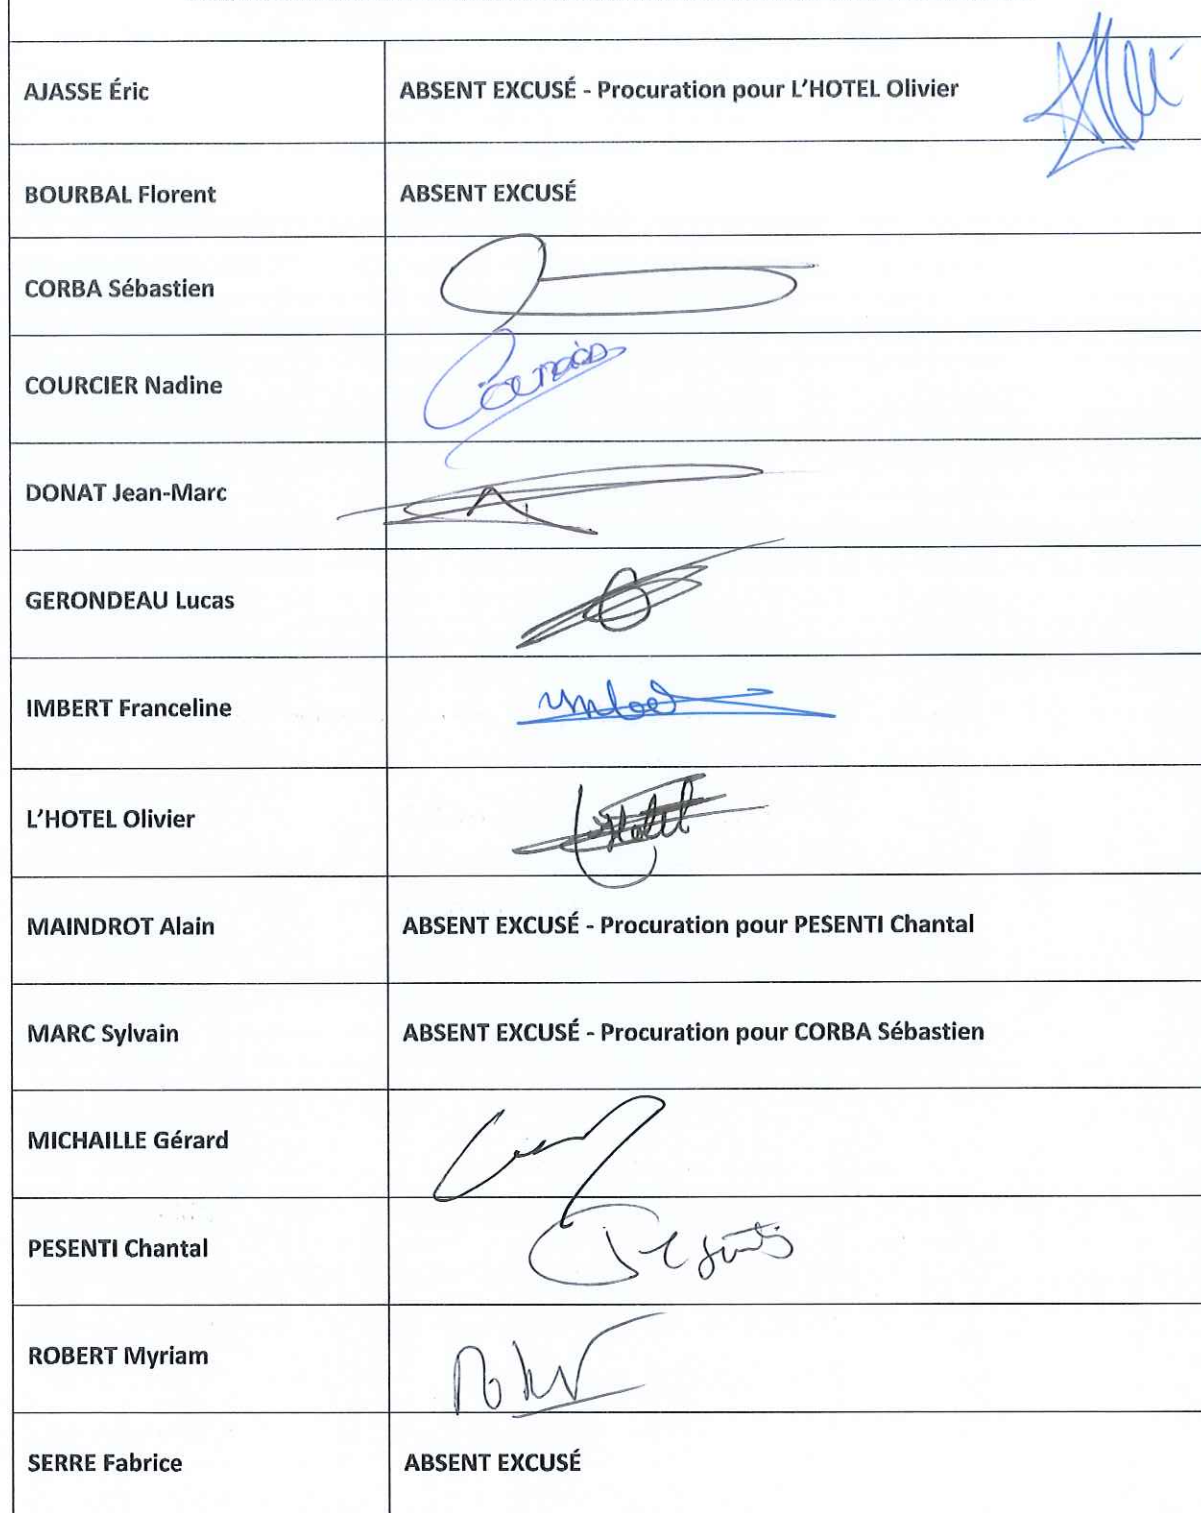 AJASSE Éric ABSENT EXCUSÉ - Procuration pour L'HOTEL Olivier
BOURBAL Florent ABSENT EXCUSÉ
CORBA Sébastien
COURCIER Nadine
DONAT Jean-Marc
GERONDEAU Lucas
IMBERT Franceline
L'HOTEL Olivier
MAINDROT Alain ABSENT EXCUSÉ - Procuration pour PESENTI Chantal
MARC Sylvain ABSENT EXCUSÉ - Procuration pour CORBA Sébastien
MICHAILLE Gérard
PESENTI Chantal Pesenti
ROBERT Myriam
SERRE Fabrice ABSENT EXCUSÉ